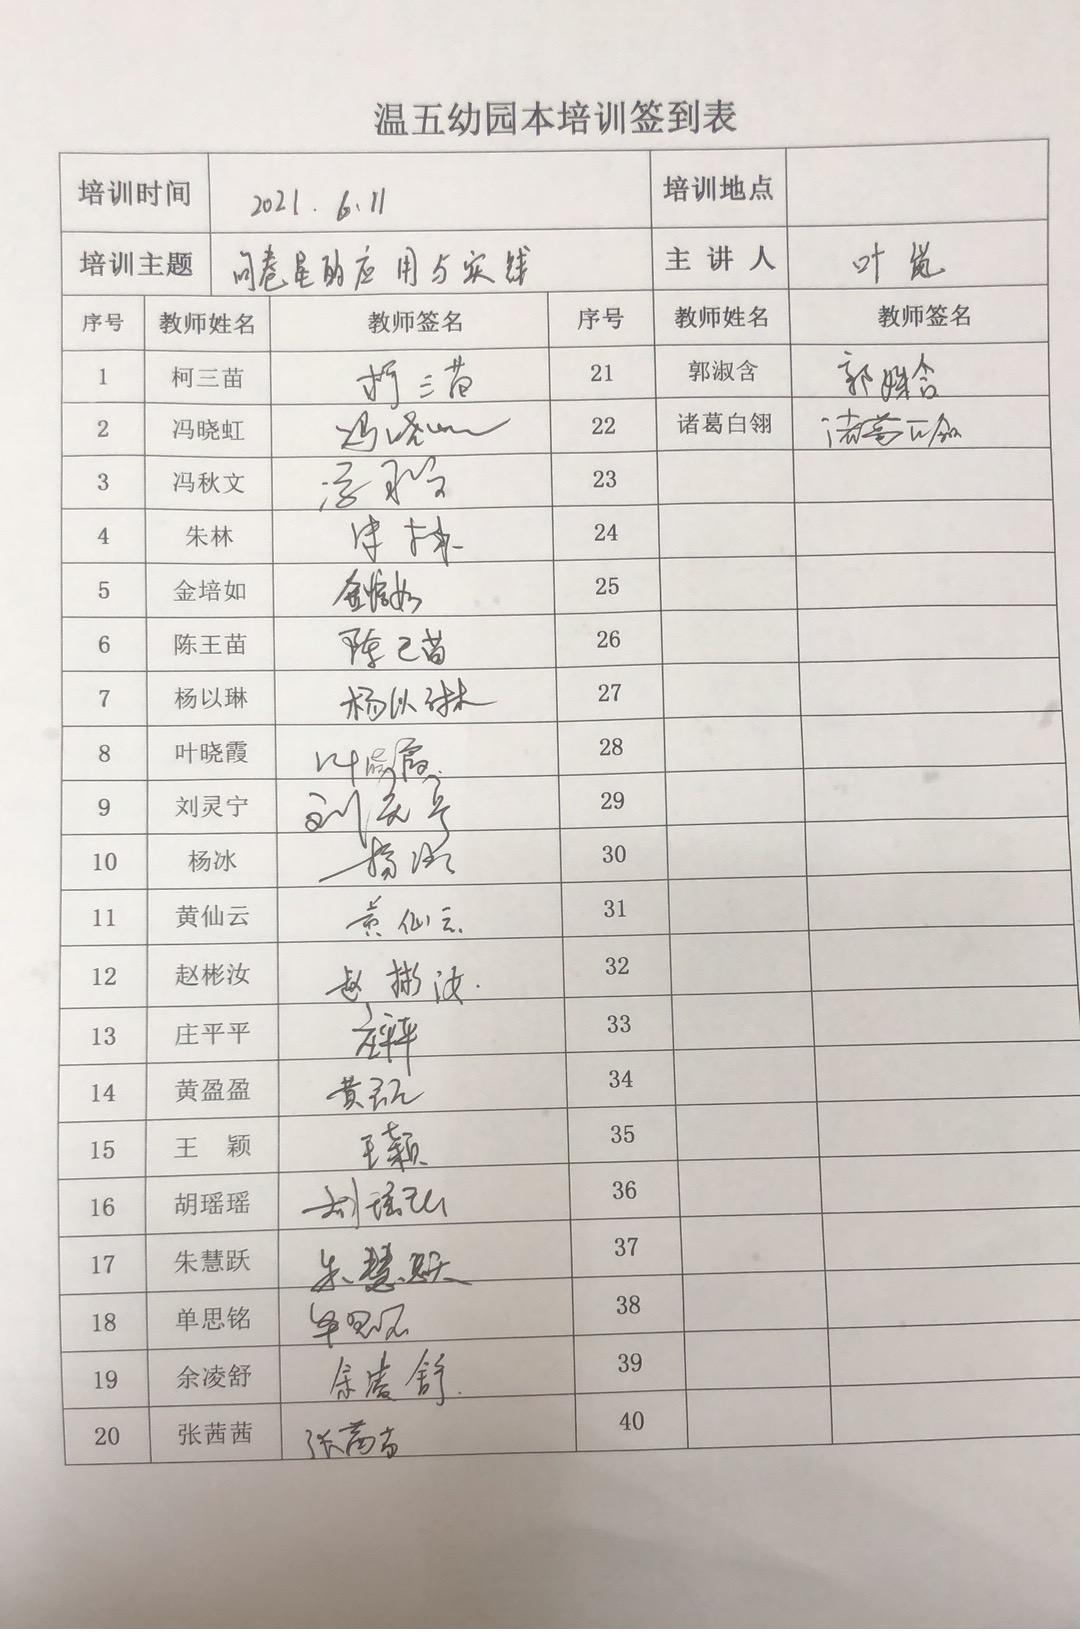 温五幼园本培训签到表
培训时间 2021.6.11 培训地点
培训主题 问卷星的应用与实践 主讲人 叶岚
序号 教师姓名 教师签名 序号 教师姓名 教师签名
1 柯三苗 柯三苗 21 郭淑含 郭淑含
2 冯晓虹 冯晓虹 22 诸葛白翎 诸葛白翎
3 冯秋文 冯秋文 23
4 朱林 朱林 24
5 金培如 金培如 25
6 陈王苗 陈王苗 26
7 杨以琳 杨以琳 27
8 叶晓霞 叶晓霞 28
9 刘灵宁 刘灵宁 29
10 杨冰 杨冰 30
11 黄仙云 黄仙云 31
12 赵彬汝 赵彬汝 32
13 庄平平 庄平平 33
14 黄盈盈 黄盈盈 34
15 王 颖 王颖 35
16 胡瑶瑶 胡瑶瑶 36
17 朱慧跃 朱慧跃 37
18 单思铭 单思铭 38
19 余凌舒 余凌舒 39
20 张茜茜 张茜茜 40